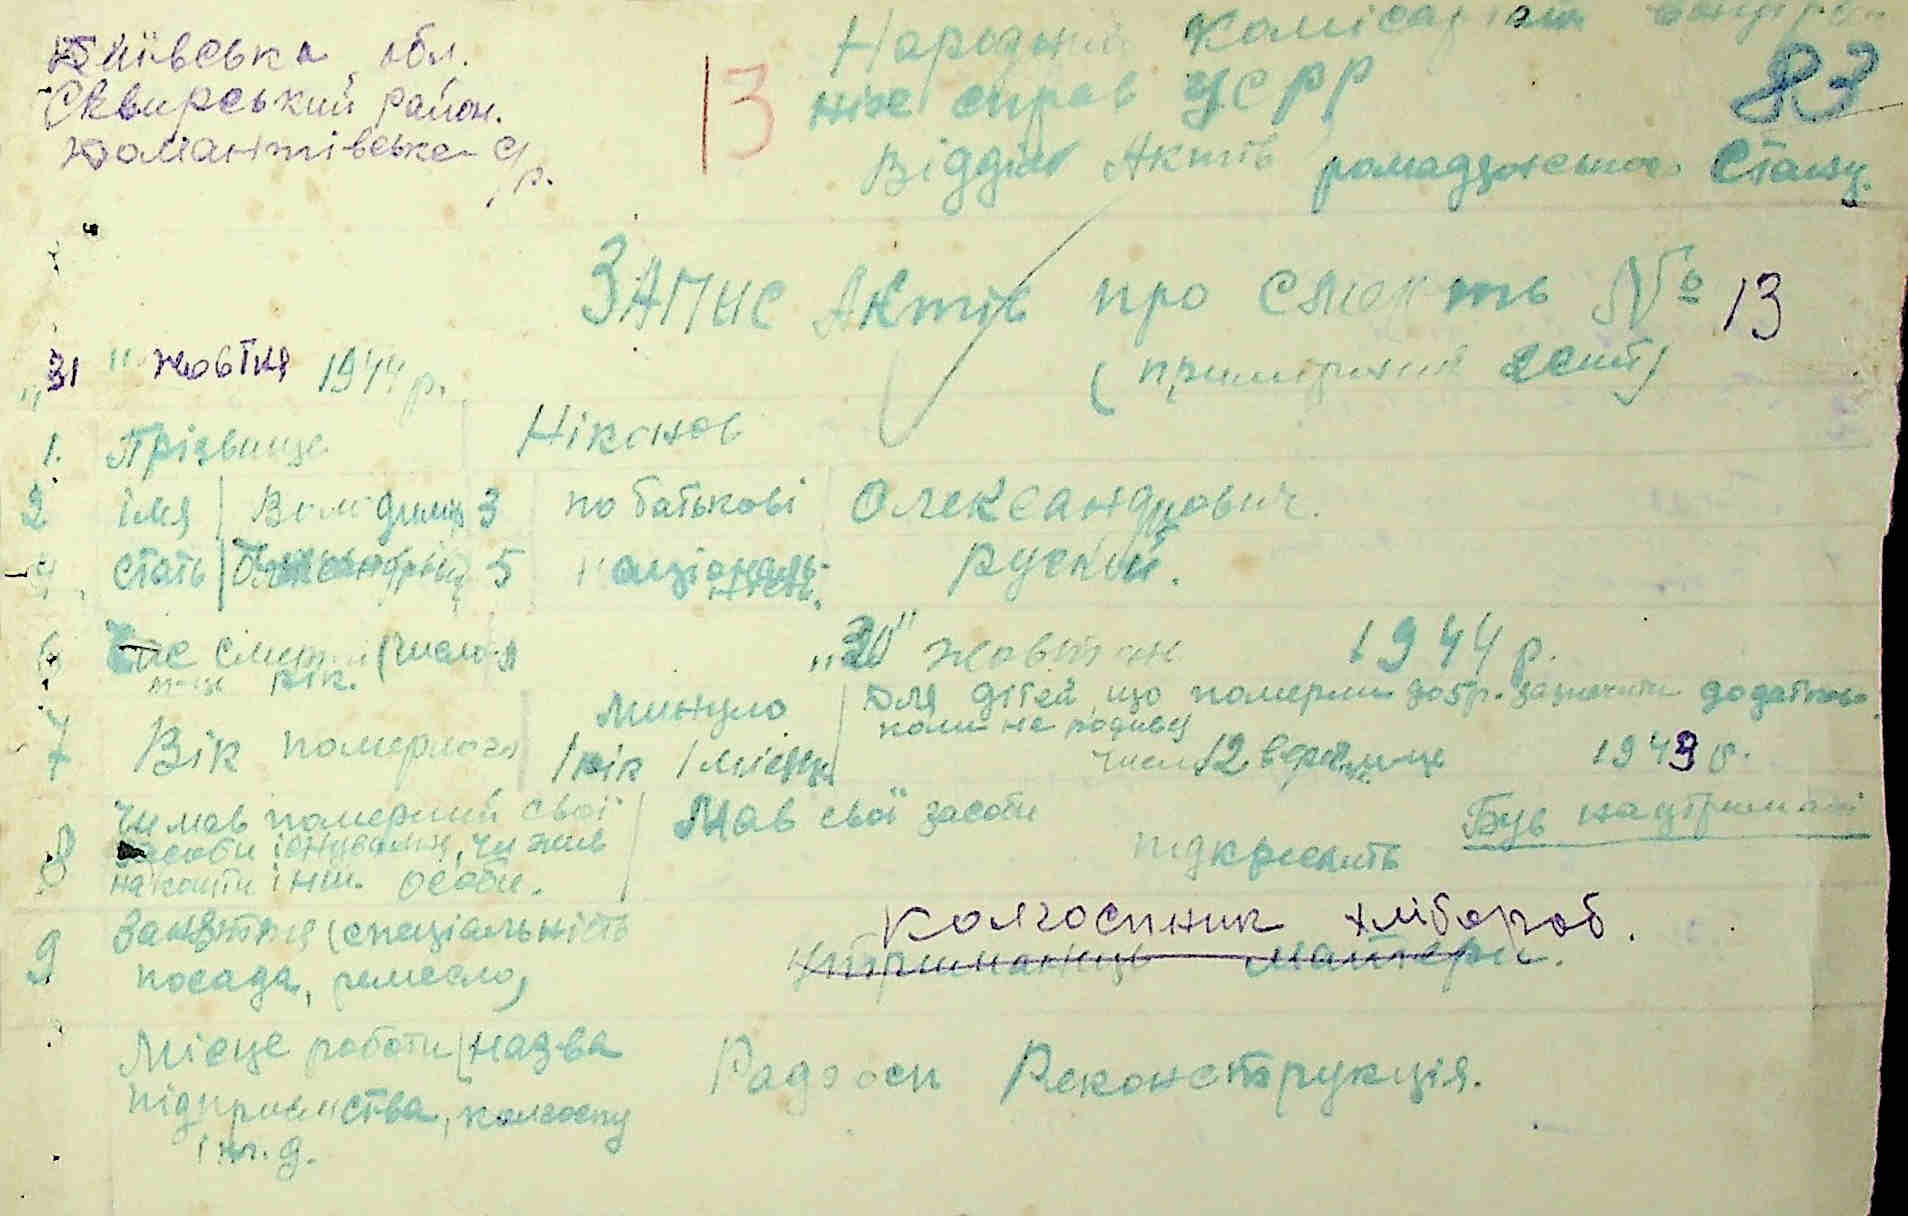 Київська обл.
Сквирський район.
Домантівська с/р.
13
Народний Комісаріат внутрі-
ніх справ УСРР
83
Відділ Актів ромадзянського Стану.
ЗАПИС Актів про смерть № 13
(примірник 2ий)
"31" жовтня 1944 р.
1. Прізвище Ніконов
2 імя Володимир 3 по батькові Олександрович.
4. стать 5 національність. руский.
6 Час смерти (число м-ць рік. "30" жовтня 1944 р.
7 Вік померлого минуло 1 рік 1 місяць
Для дітей що померли до 5 р. зазначити додатково
коли не родивсь
число 12 вересня 1943 р.
8 Чи мав померший свої засоби існування, чи жив на кошти інш. особи.
Мав свої засоби підкреслить Був на утриманні
9 Заняття (спеціальність посада, ремесло,
Колгоспник хлібороб.
утриманець матери.
Місце роботи (назва підприємства, колгоспу і т. д.
Радгосп Реконструкція.